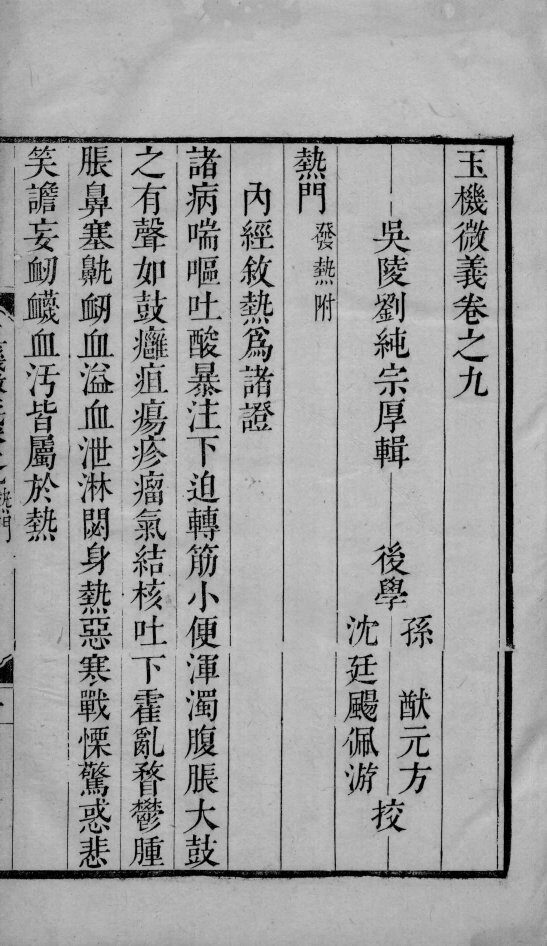 玉機微義卷之九
吳陵劉純宗厚輯 後學 孫 猷元方 沈廷颺佩游 挍
熱門 發熱附
內經敘熱爲諸證
諸病喘嘔吐酸暴注下迫轉筋小便渾濁腹脹大鼓
之有聲如鼓癰疽瘍疹瘤氣結核吐下霍亂瞀鬱腫
脹鼻塞鼽衂血溢血泄淋閟身熱惡寒戰慄驚惑悲
笑譫妄衂衊血汚皆屬於熱
熱門